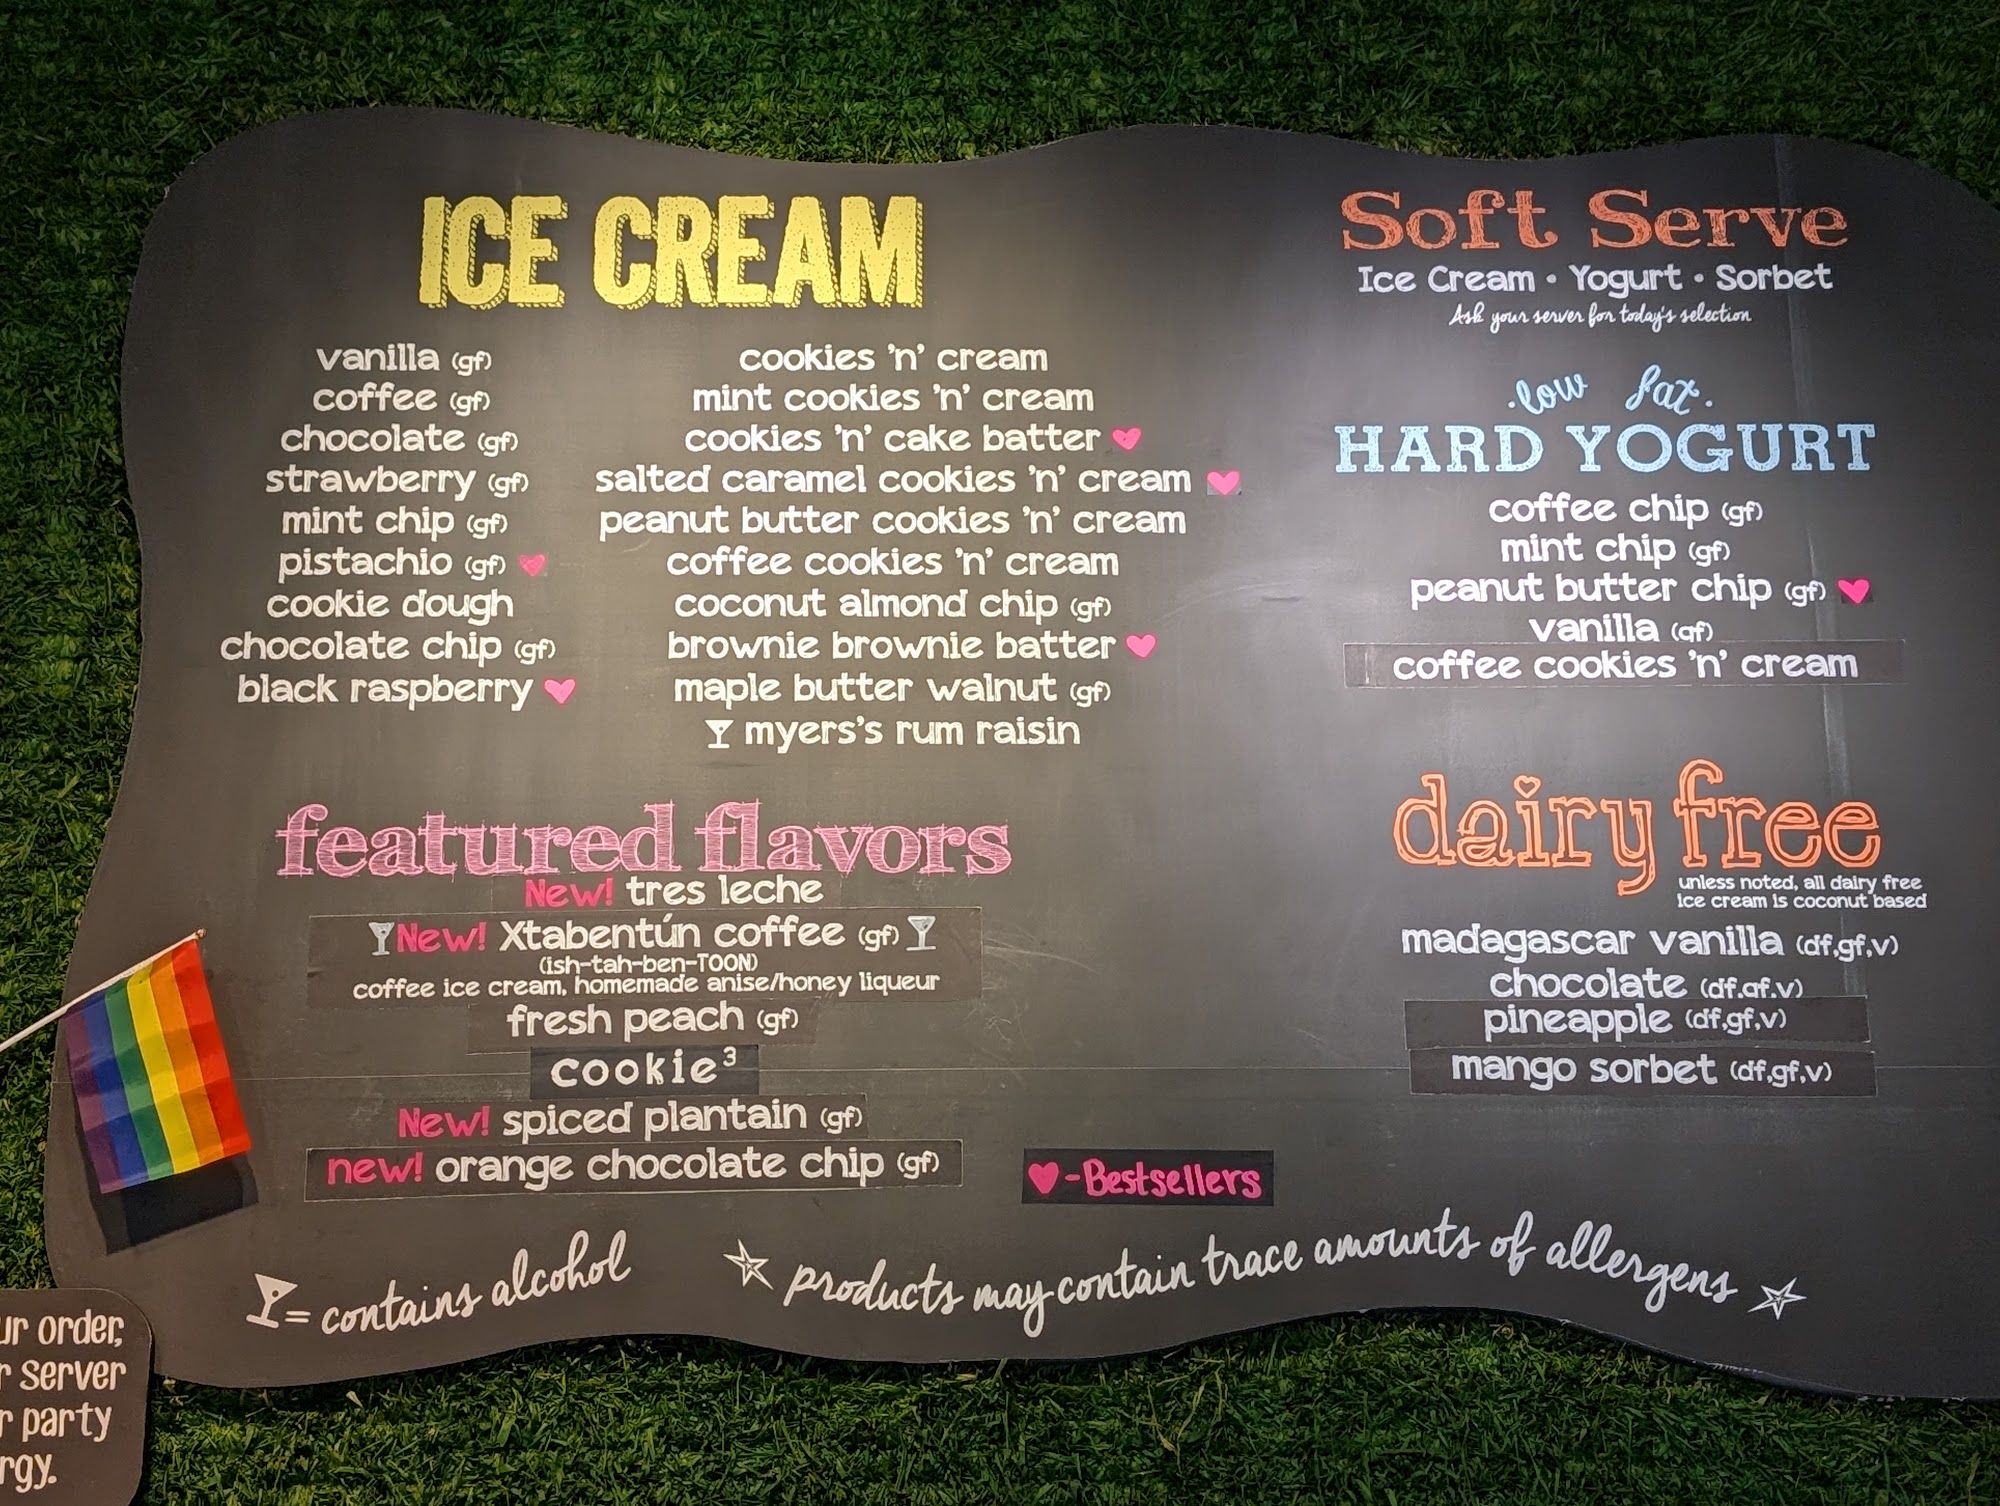 ICE CREAM
vanilla (gf)
coffee (gf)
chocolate (gf)
strawberry (gf)
mint chip (gf)
pistachio (gf)
cookie dough
chocolate chip (gf)
black raspberry
cookies 'n' cream
mint cookies 'n' cream
cookies 'n' cake batter
salted caramel cookies 'n' cream
peanut butter cookies 'n' cream
coffee cookies 'n' cream
coconut almond chip (gf)
brownie brownie batter
maple butter walnut (gf)
myers's rum raisin
featured flavors
New! tres leche
New! Xtabentún coffee (gf)
(ish-tah-ben-TOON)
coffee ice cream, homemade anise/honey liqueur
fresh peach (gf)
cookie³
New! spiced plantain (gf)
new! orange chocolate chip (gf)
Soft Serve
Ice Cream • Yogurt • Sorbet
Ask your server for today's selection
·low fat·
HARD YOGURT
coffee chip (gf)
mint chip (gf)
peanut butter chip (gf)
vanilla (gf)
coffee cookies 'n' cream
dairy free
unless noted, all dairy free
ice cream is coconut based
madagascar vanilla (df,gf,v)
chocolate (df,gf,v)
pineapple (df,gf,v)
mango sorbet (df,gf,v)
♥-Bestsellers
= contains alcohol
☆ products may contain trace amounts of allergens ☆
order,
server
party